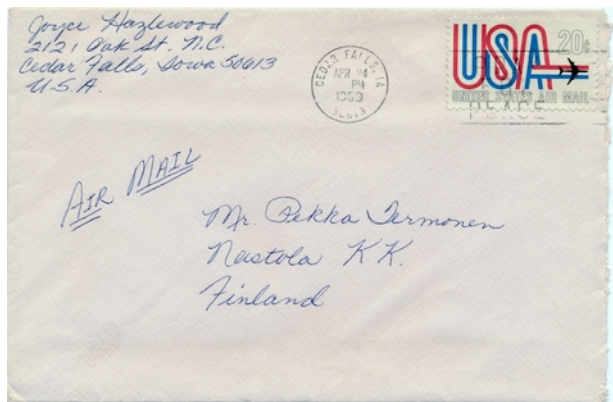 Joyce Hazlewood
2121 Oak St. N.C.
Cedar Falls, Iowa 50613
U.S.A.
CEDAR FALLS, IA
APR 24
PM
1969
50613
USA 20c
UNITED STATES AIR MAIL
PEACE
AIR MAIL
Mr. Pekka Termonen
Nastola K.K.
Finland